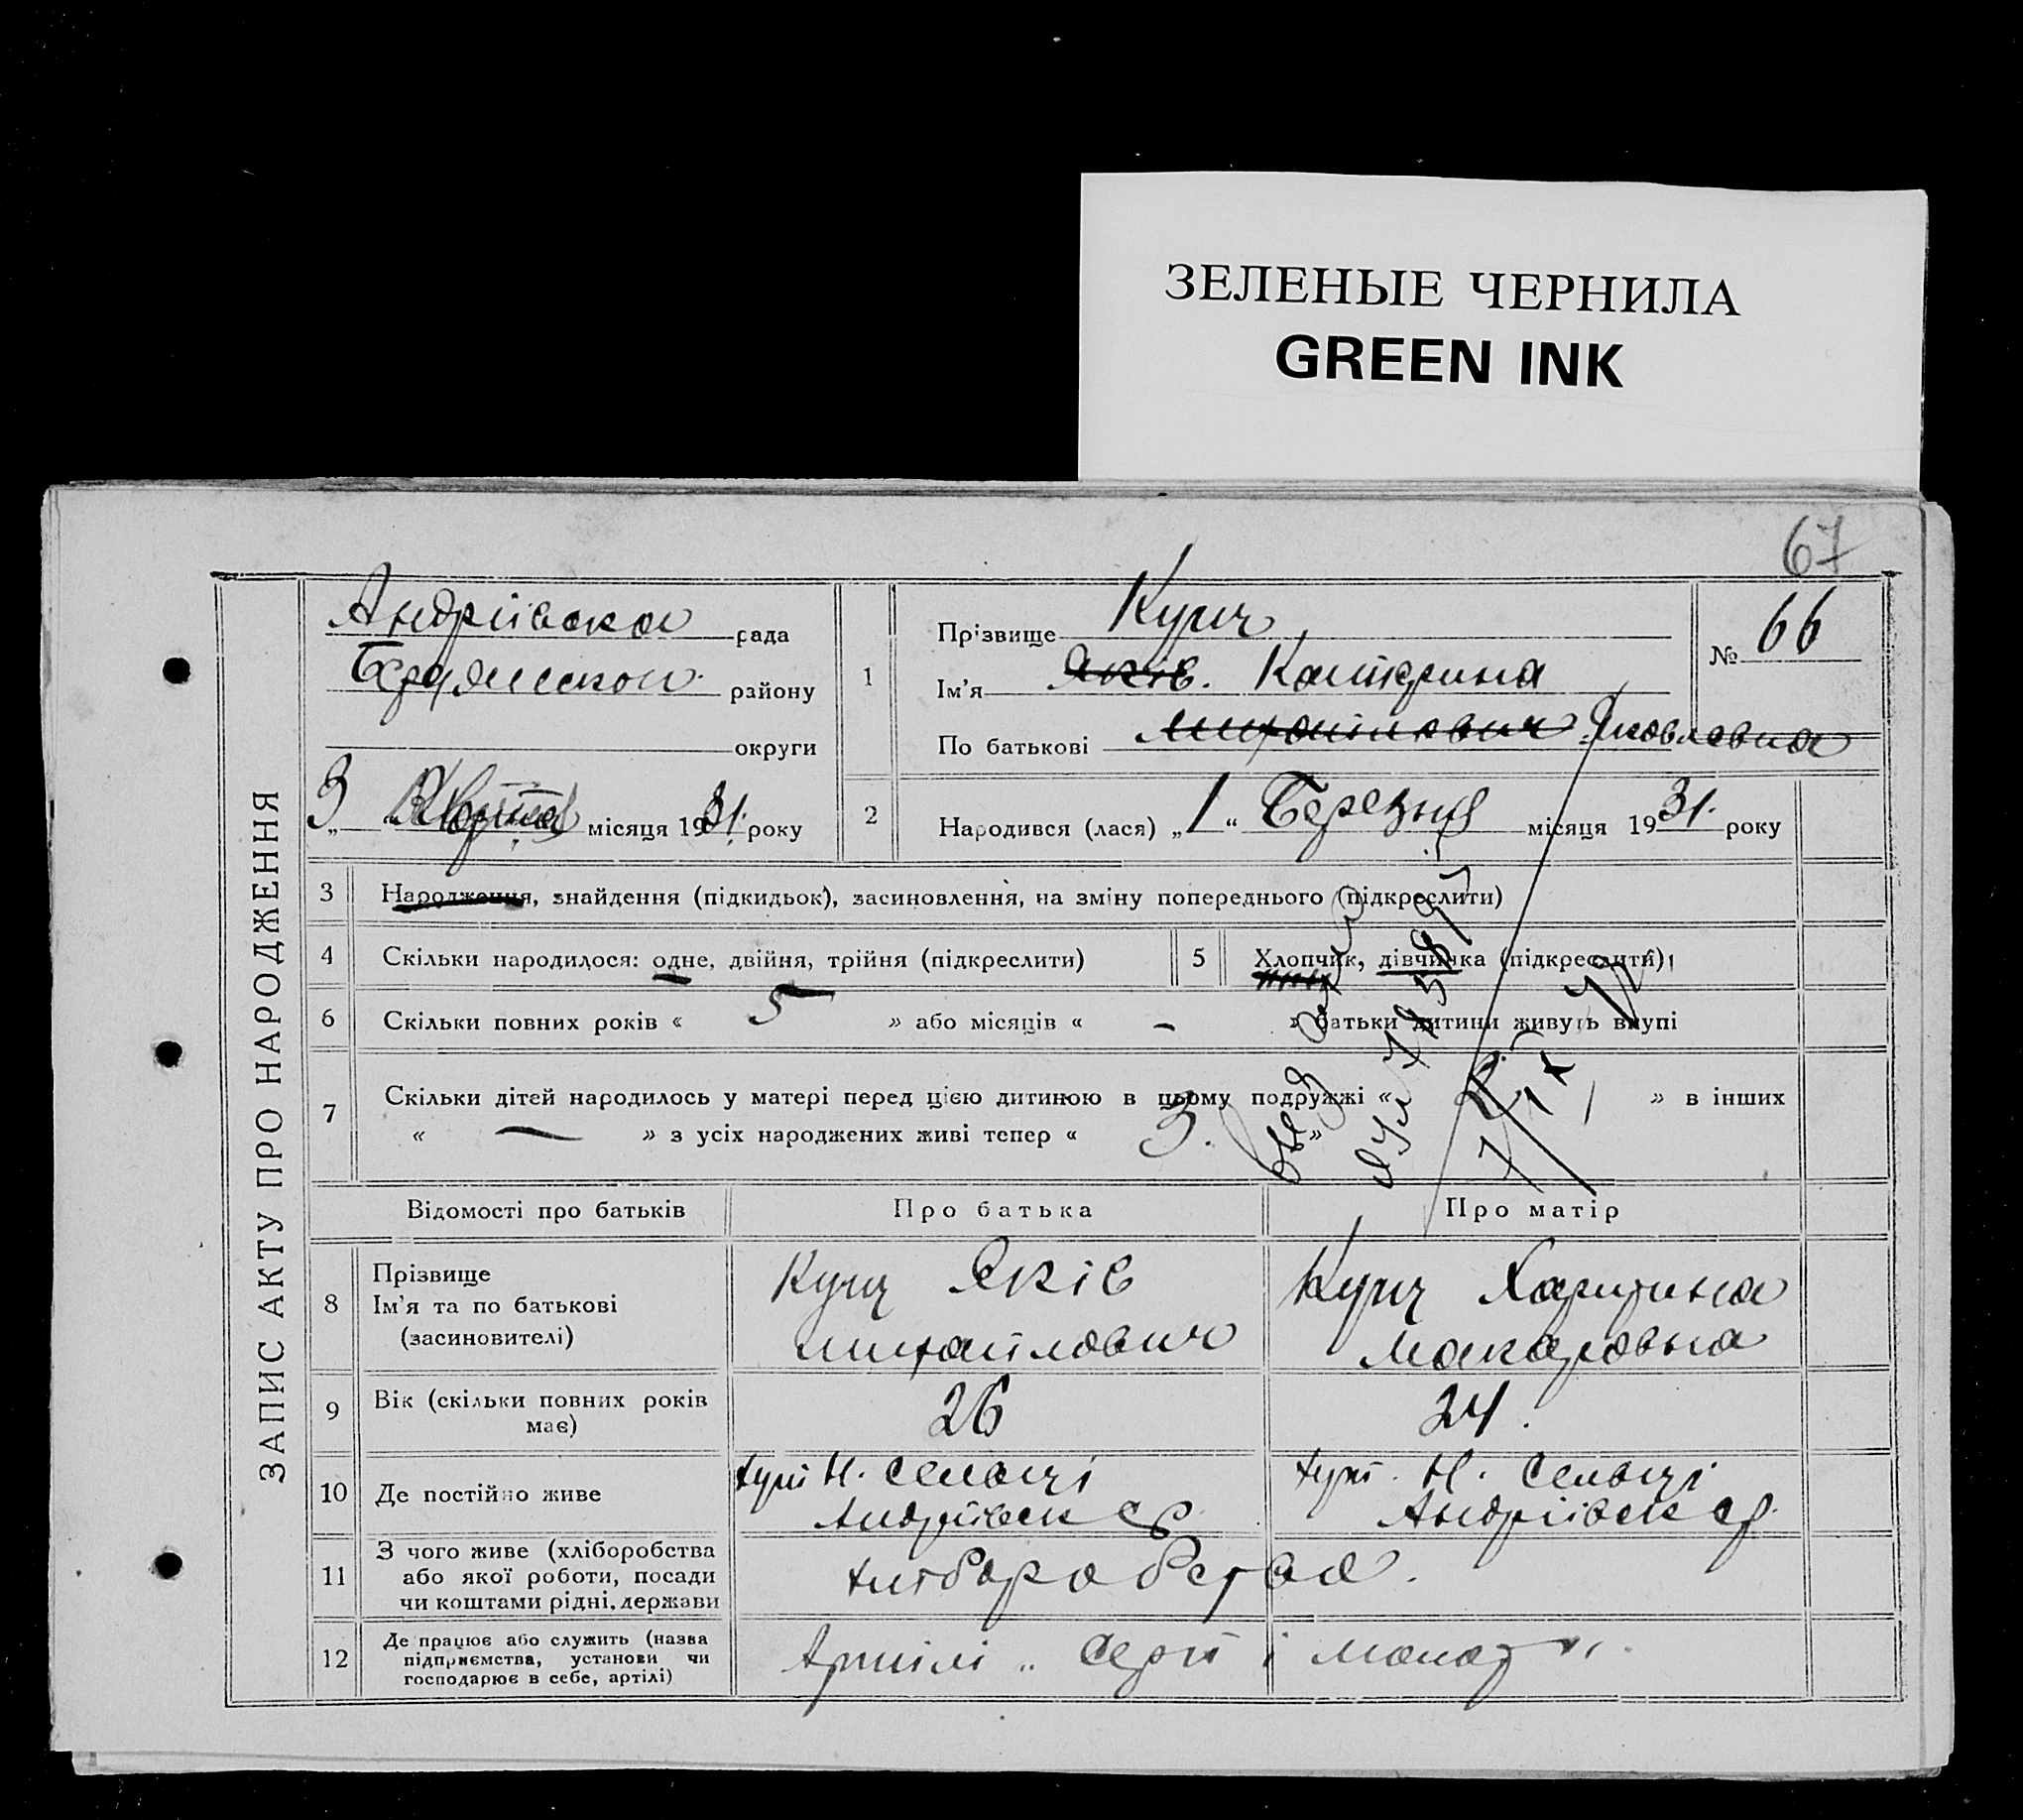 ЗЕЛЕНЫЕ ЧЕРНИЛА
GREEN INK
67
ЗАПИС АКТУ ПРО НАРОДЖЕННЯ
Андріівска рада
району
округи
3 місяця 1931 року
1 Прізвище Куци
Ім'я Яків. Катерина
По батькові Михайлович Яковлевна
№ 66
2 Народився (лася) „1“ Березня місяця 1931. року
3 Народження, знайдення (підкидьок), засиновлення, на зміну попереднього (підкреслити)
4 Скільки народилося: одне, двійня, трійня (підкреслити) 5 Хлопчик, дівчинка (підкреслити)
6 Скільки повних років « 5 » або місяців « – » батьки дитини живуть вкупі
7 Скільки дітей народилось у матері перед цією дитиною в цьому подружжі « » в інших
« — » з усіх народжених живі тепер « 3. »
Відомості про батьків Про батька Про матір
8 Прізвище
Ім'я та по батькові
(засиновителі)
Куц Яків
Михайлович
Куц Харитина
Макаровна
9 Вік (скільки повних років
має)
26 24.
10 Де постійно живе
хут Н. Сельці
Андріівск ср.
хут. Н. Сельці
Андріівск ср.
11 З чого живе (хліборобства
або якої роботи, посади
чи коштами рідні, держави
хліборобства.
12 Де працює або служить (назва
підприємства, установи чи
господарює в себе, артілі)
Артілі „ Серп і Молот".